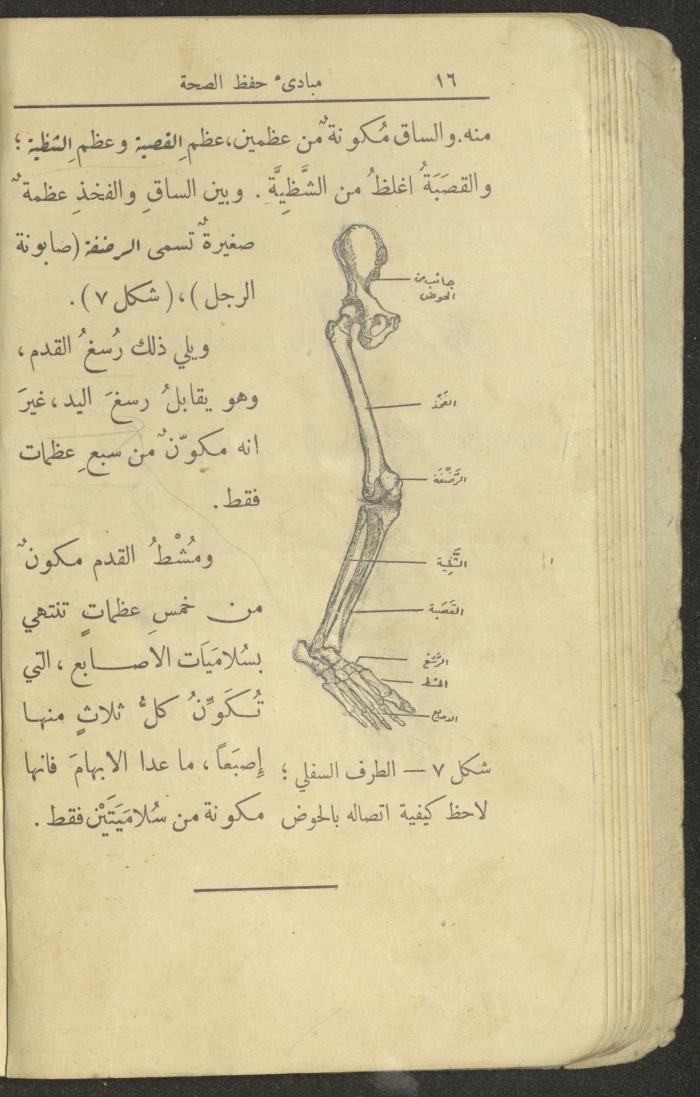 ١٦ مبادىء حفظ الصحة
منه. والساق مُكونةٌ من عظمين، عظمِ القصبة وعظمِ الشظية ؛
والقصَبَةُ اغلظُ من الشَّظِيَّة . وبين الساقِ والفخذِ عظمةٌ
صغيرةٌ تسمى الرضفة (صابونة
الرجل)، (شكل ٧).
ويلي ذلك رُسغُ القدم،
وهو يقابلُ رسغَ اليد، غيرَ
انه مكوّنٌ من سبعِ عظمات
فقط.
ومُشْطُ القدم مكونٌ
من خمسِ عظماتٍ تنتهي
بسُلامَيَات الاصابع، التي
تُكَوِّنُ كلُّ ثلاثٍ منها
إصبَعاً، ما عدا الابهامَ فانها
مكونة من سُلامَيَتَيْن فقط.
جانب من
الحوض
الفَخْذ
الرَّضْفَة
الشَّظِيَّة
القَصَبة
الرُّسْغ
المشط
الاصابع
شكل ٧ — الطرف السفلي ؛
لاحظ كيفية اتصاله بالحوض